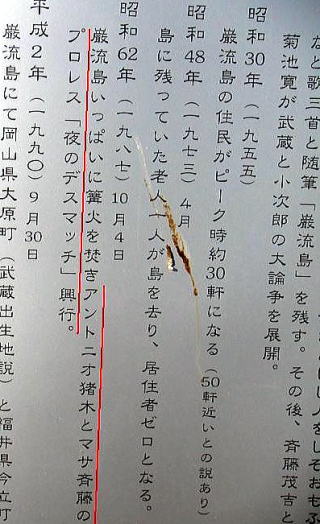 なと歌三首と随筆「巌流島」を残す。その後、斉藤茂吉と
菊池寛が武蔵と小次郎の大論争を展開。
昭和30年（一九五五）
巌流島の住民がピーク時約30軒になる（50軒近いとの説あり）
昭和48年（一九七三）4月
島に残っていた老人一人が島を去り、居住者ゼロとなる。
昭和62年（一九八七）10月4日
巌流島いっぱいに篝火を焚きアントニオ猪木とマサ斉藤の
プロレス「夜のデスマッチ」興行。
平成2年（一九九〇）9月30日
巌流島にて岡山県大原町（武蔵出生地説）と福井県今立町